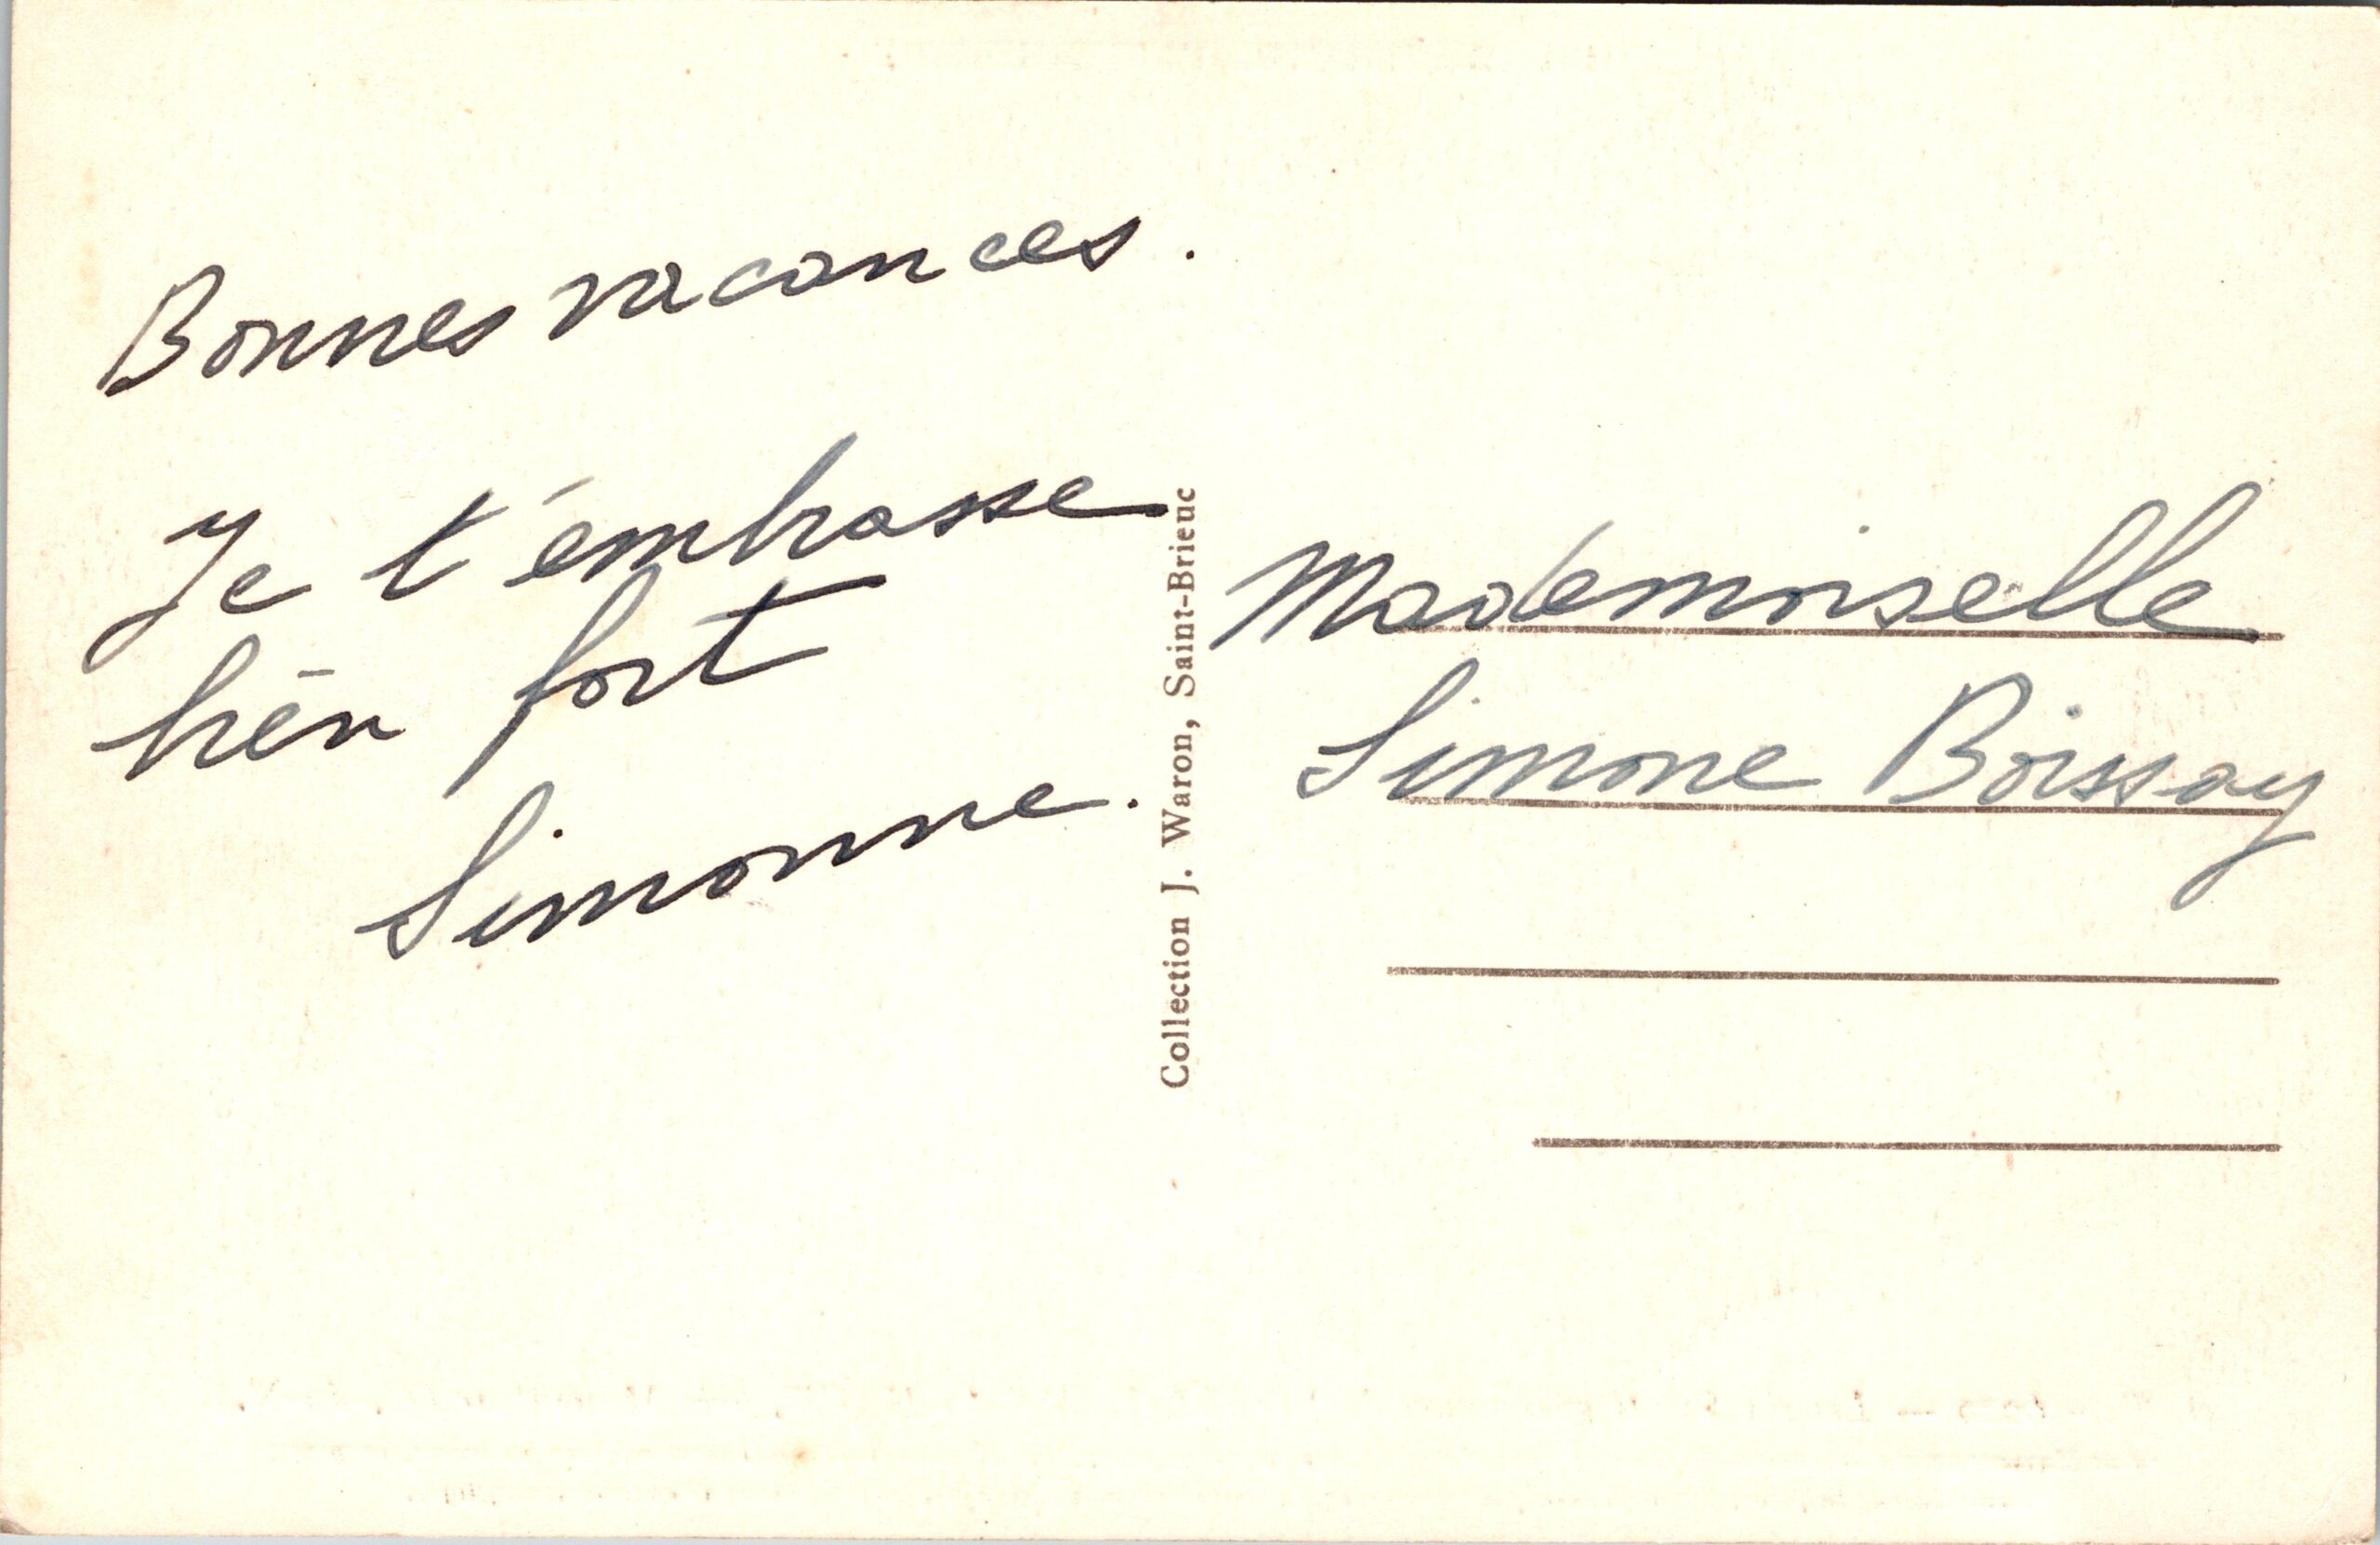 Bonnes vacances.
Je t'embrasse
bien fort
Simonne.
Collection J. Waron, Saint-Brieuc
Mademoiselle
Simone Boissay